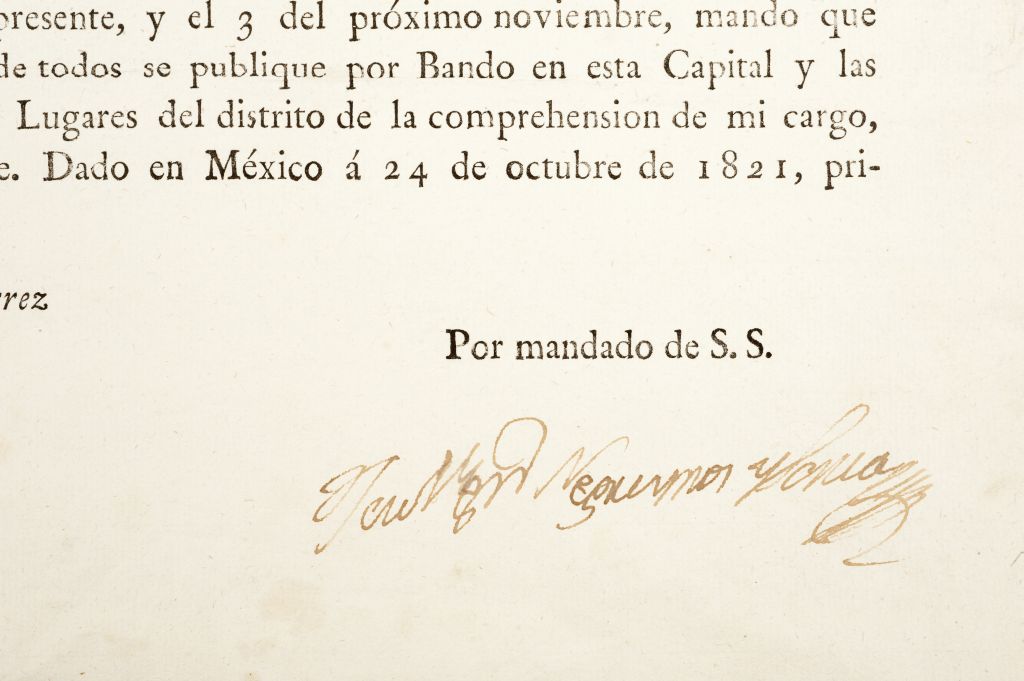 presente, y el 3 del próximo noviembre, mando que
de todos se publique por Bando en esta Capital y las
Lugares del distrito de la comprehension de mi cargo,
e. Dado en México á 24 de octubre de 1821, pri-
rrez
Por mandado de S. S.